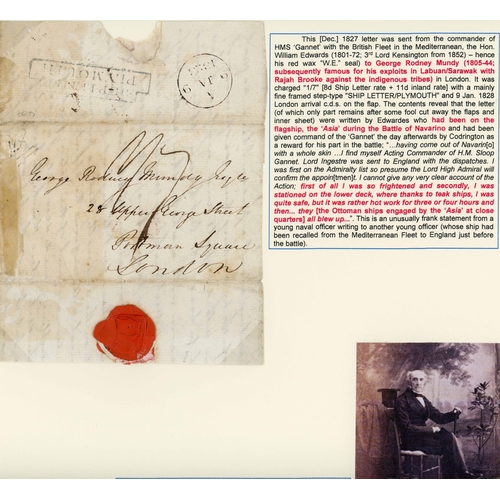 SHIP LETTER
PLYMOUTH
9 JA 9
1828
1/7
George Rodney Mundy Esq re
28 Upper George Street
Portman Square
London
This [Dec.] 1827 letter was sent from the commander of
HMS 'Gannet' with the British Fleet in the Mediterranean, the Hon.
William Edwardes (1801-72; 3rd Lord Kensington from 1852) – hence
his red wax "W.E." seal) to George Rodney Mundy (1805-44;
subsequently famous for his exploits in Labuan/Sarawak with
Rajah Brooke against the indigenous tribes) in London. It was
charged "1/7" [8d Ship Letter rate + 11d inland rate] with a mainly
fine framed step-type "SHIP LETTER/PLYMOUTH" and 9 Jan. 1828
London arrival c.d.s. on the flap. The contents reveal that the letter
(of which only part remains after some foul cut away the flaps and
inner sheet) were written by Edwardes who had been on the
flagship, the 'Asia' during the Battle of Navarino and had been
given command of the 'Gannet' the day afterwards by Codrington as
a reward for his part in the battle; "...having come out of Navarin[o]
with a whole skin ...I find myself Acting Commander of H.M. Sloop
Gannet. Lord Ingestre was sent to England with the dispatches. I
was first on the Admiralty list so presume the Lord High Admiral will
confirm the appoin[tmen]t. I cannot give any very clear account of the
Action; first of all I was so frightened and secondly, I was
stationed on the lower deck, where thanks to teak ships, I was
quite safe, but it was rather hot work for three or four hours and
then... they [the Ottoman ships engaged by the 'Asia' at close
quarters] all blew up...". This is an unusually frank statement from a
young naval officer writing to another young officer (whose ship had
been recalled from the Mediterranean Fleet to England just before
the battle).